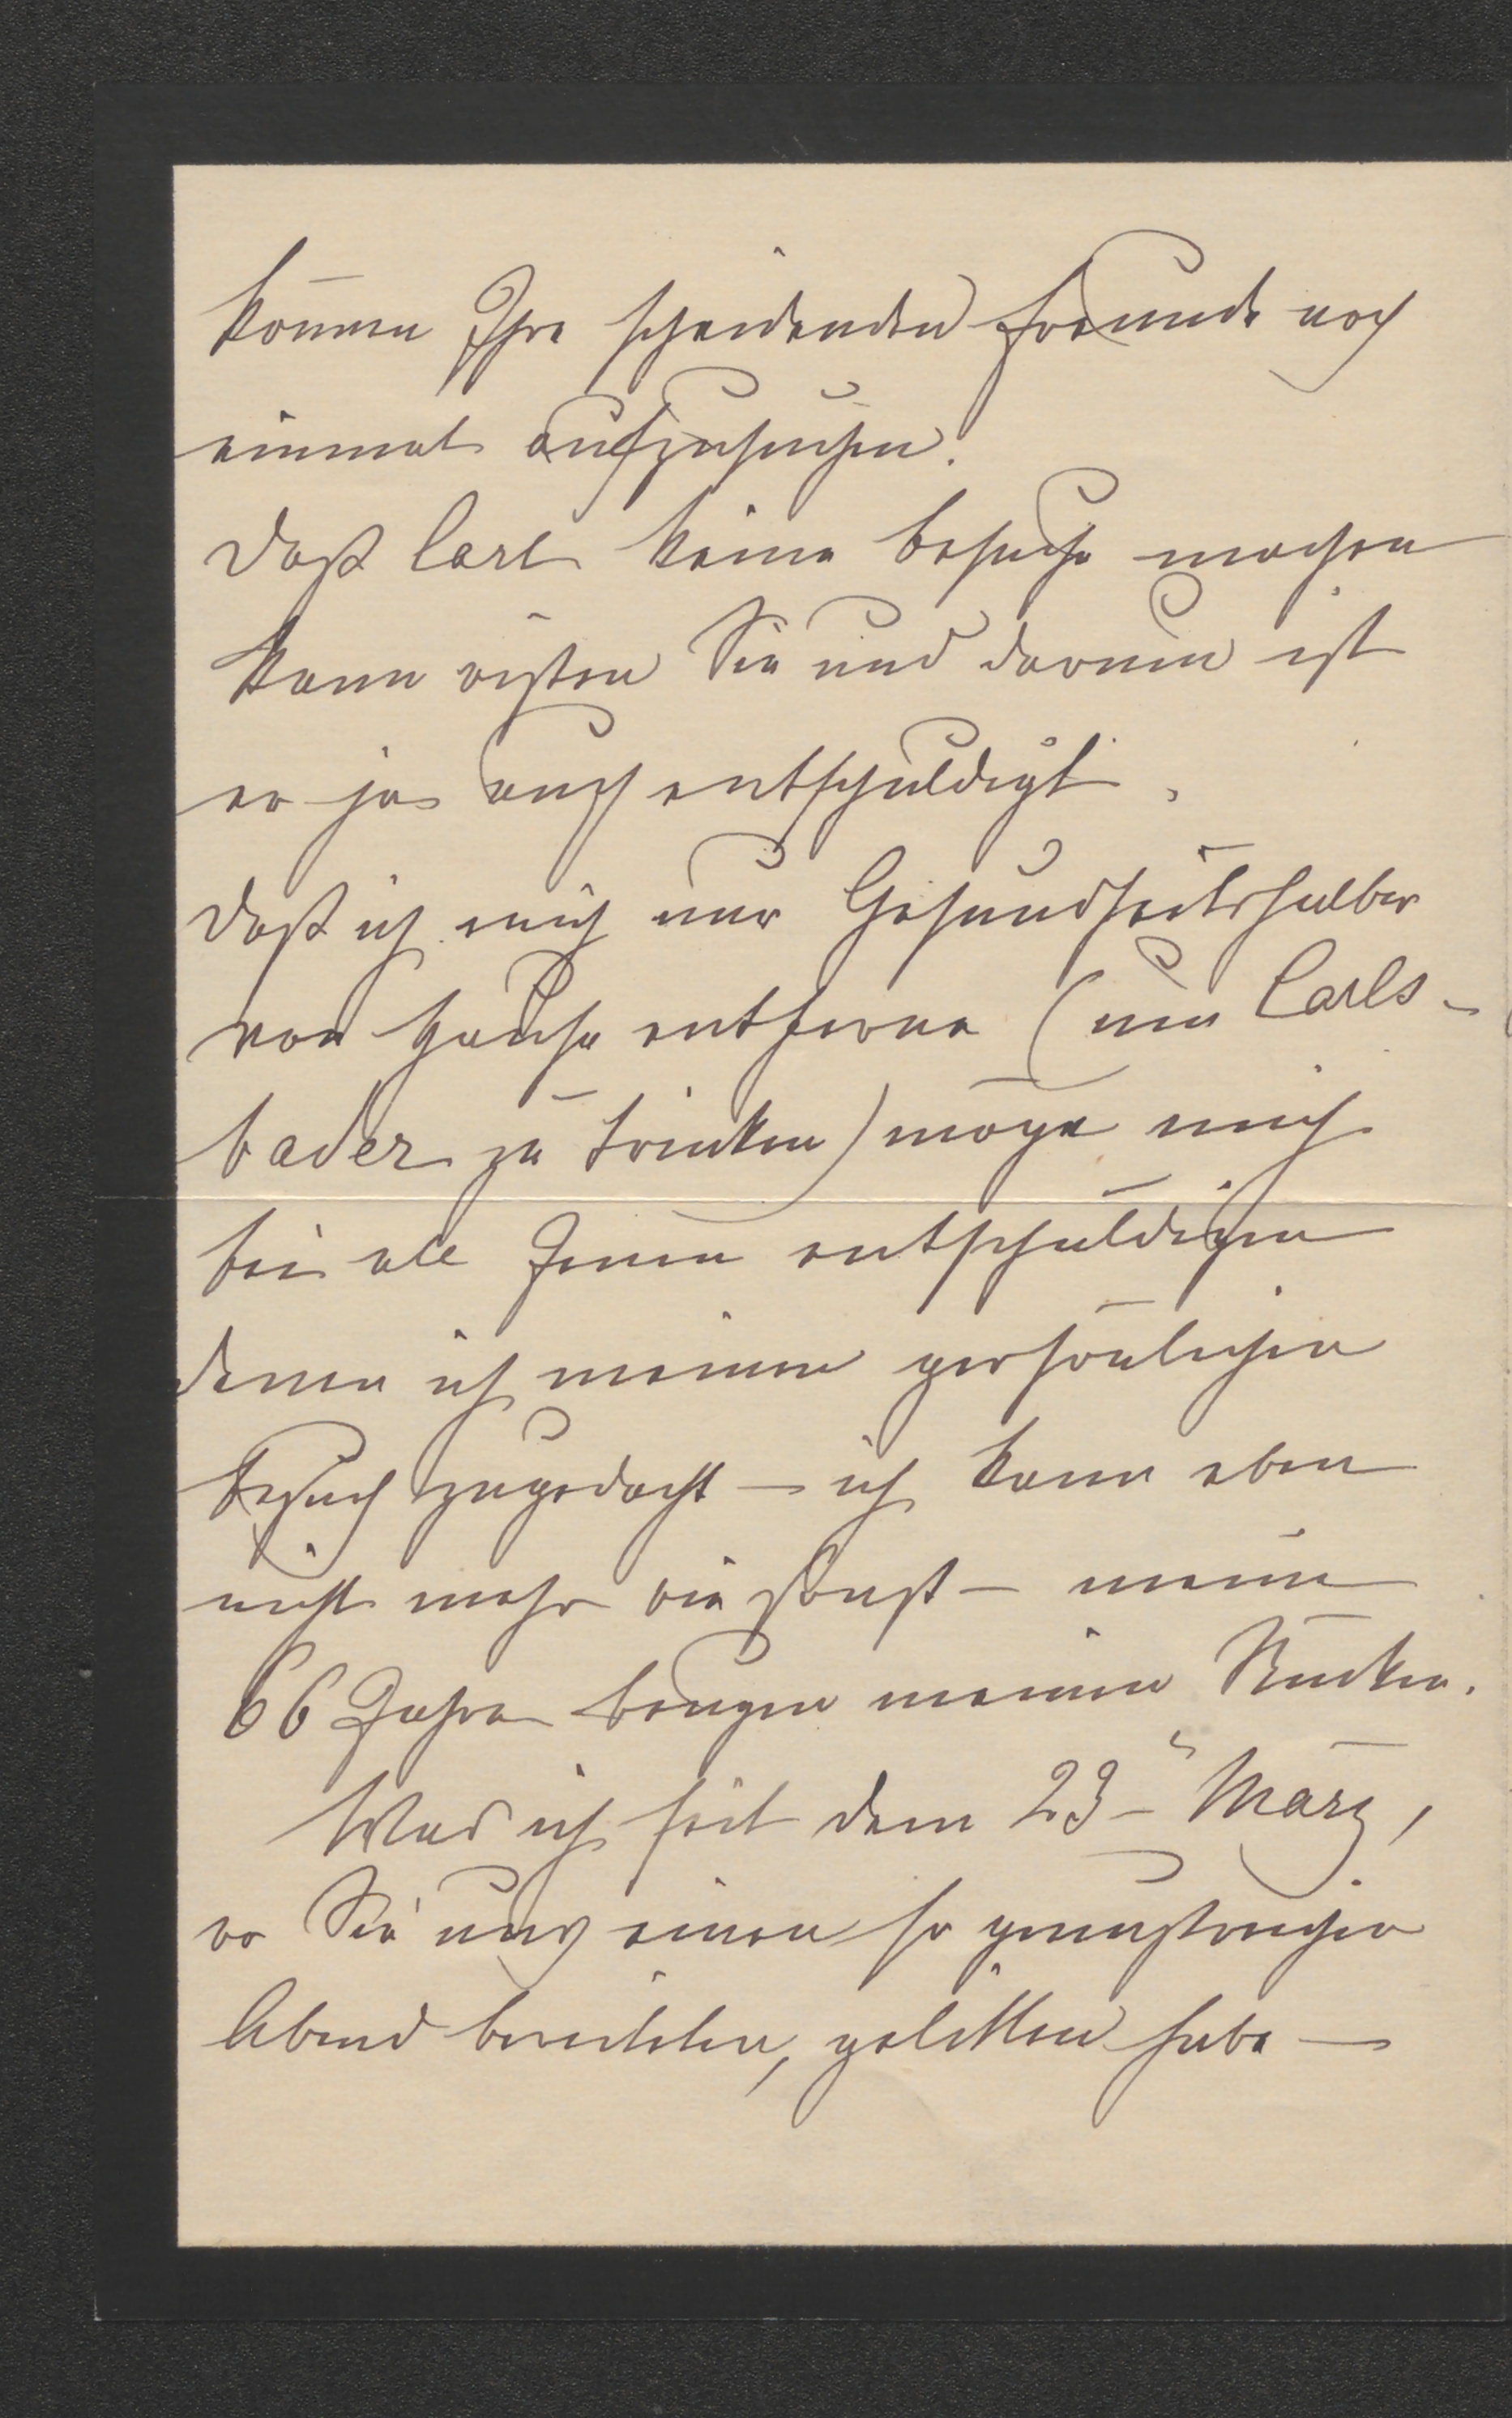 können Ihre scheidenden Freunde noch
einmal aufzusuchen.
Daß Carl keine Besuche machen
kann wißen Sie und darum ist
er ja auch entschuldigt.
Daß ich mich nur Gesundheitshalber
von Hause entferne (um Carls-
bader zu trinken) möge mich
bei all Jenen entschuldigen
denen ich meinen persönlichen
Besuch zugedacht – ich kann eben
nicht mehr wie sonst – meine
66 Jahre beugen meinen Rücken.
Was ich seit dem 23– März,
wo Sie uns einen so genußreichen
Abend bereiteten, gelitten habe –